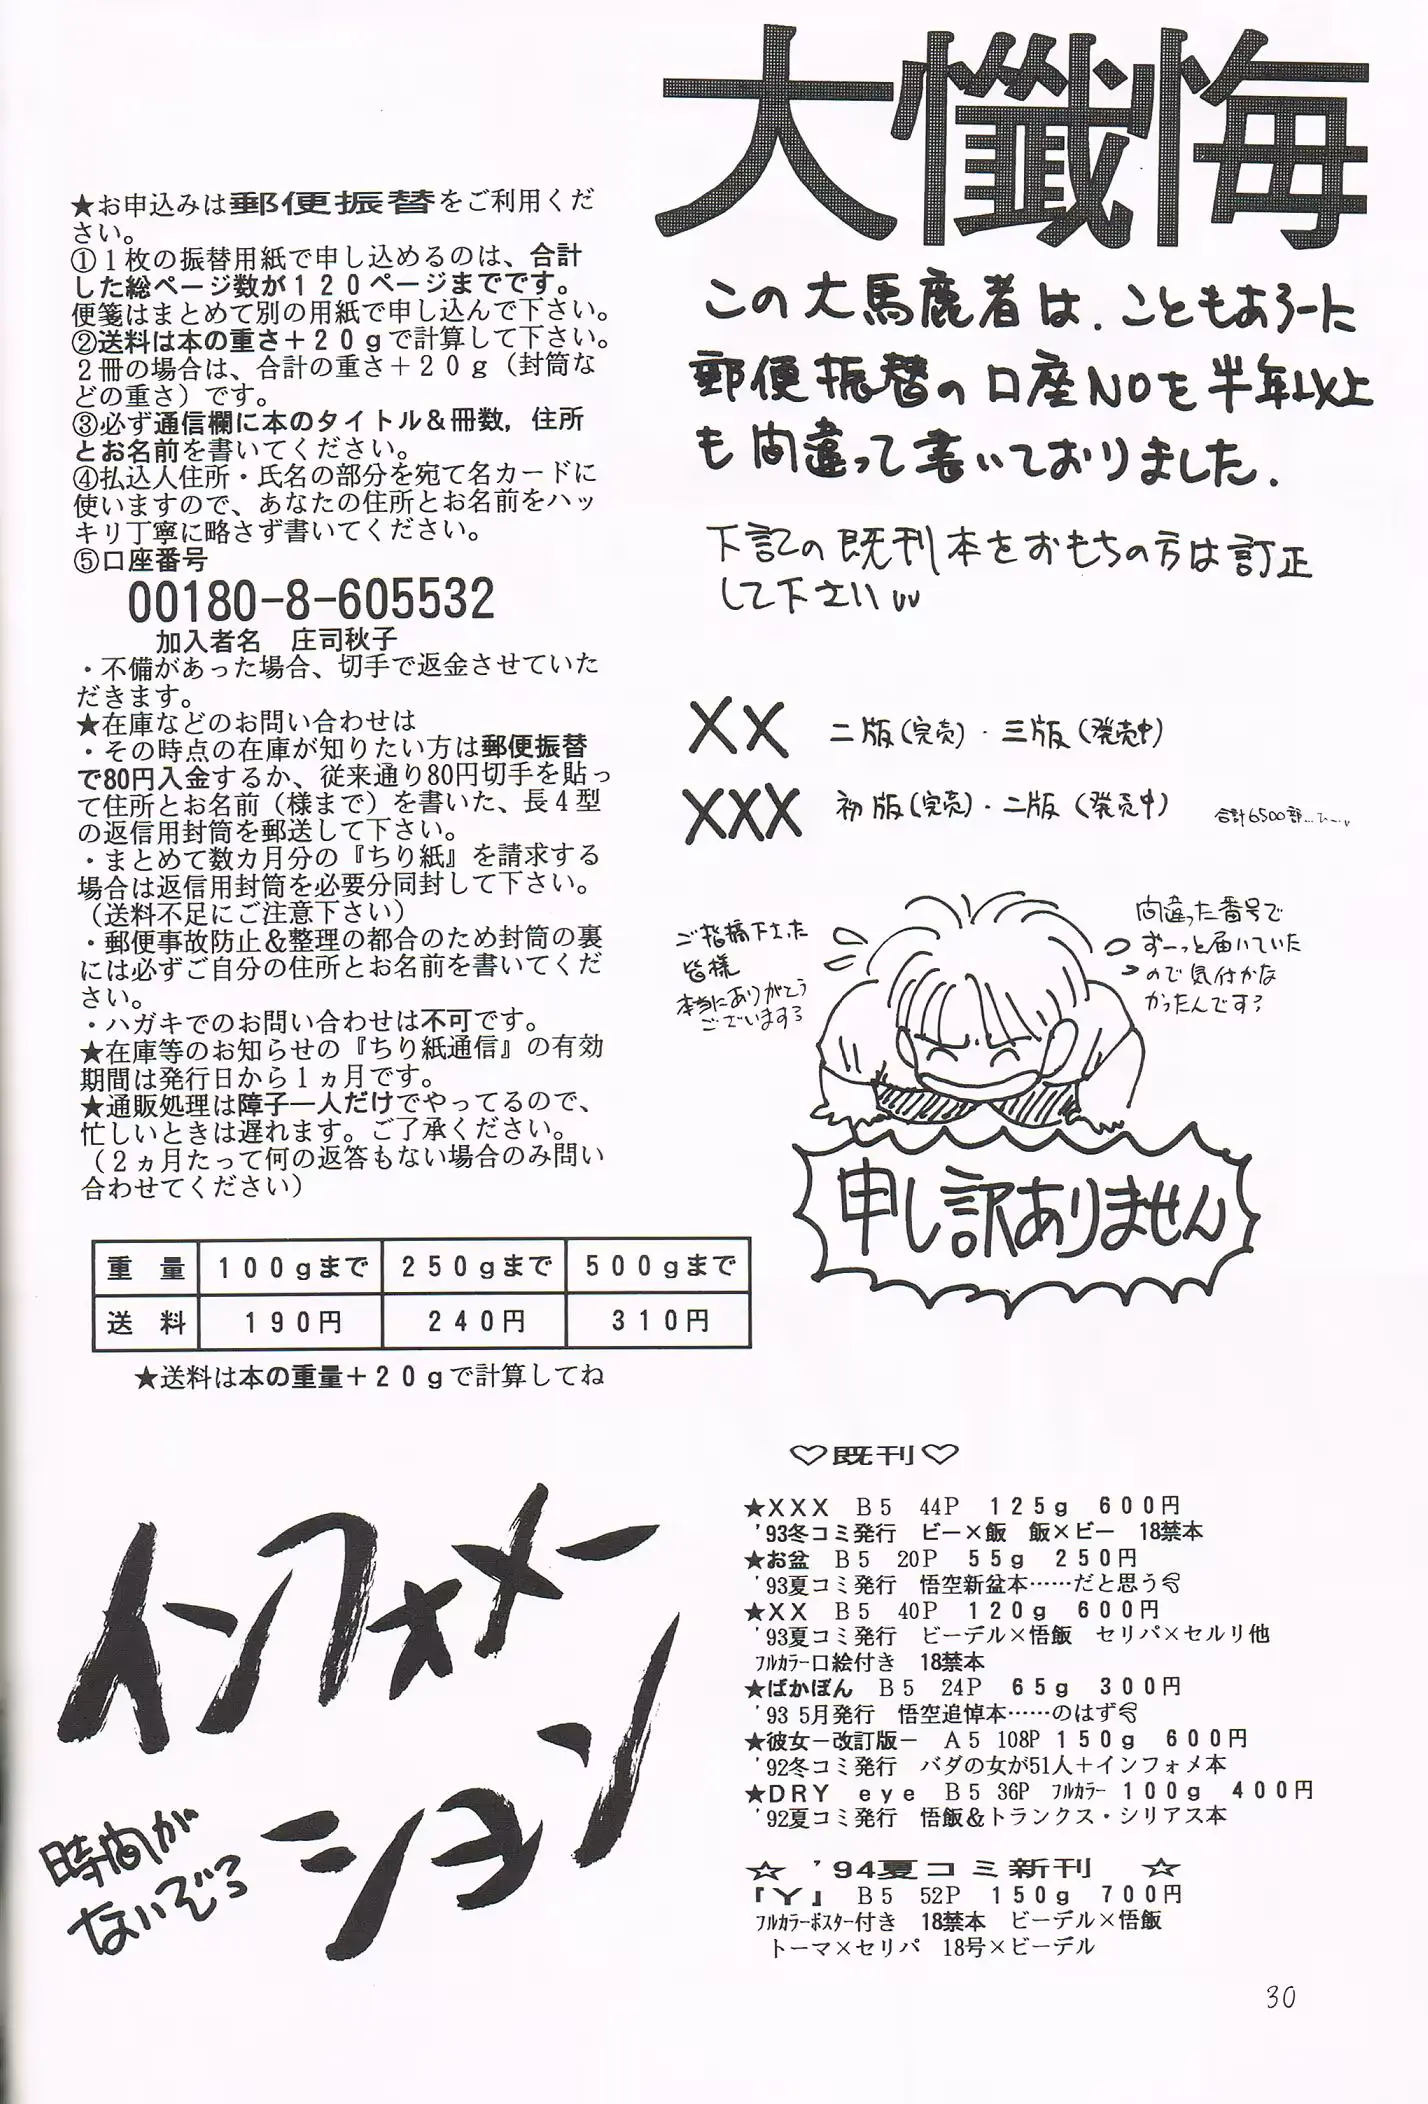 大懺悔
この大馬鹿者は、こともあろーに
郵便振替の口座NOを半年以上
も間違って書いておりました.
下記の既刊本をおもちの方は訂正
して下さい
XX 二版(完売)・三版(発売中)
XXX 初版(完売)・二版(発売中) 合計6500部…ひー
ご指摘下さった
皆様
本当にありがとう
ございますう
間違った番号で
ずーっと届いていた
ので気付かな
かったんです?
申し訳ありません
★お申込みは郵便振替をご利用くだ
さい。
①1枚の振替用紙で申し込めるのは、合計
した総ページ数が120ページまでです。
便箋はまとめて別の用紙で申し込んで下さい。
②送料は本の重さ+20gで計算して下さい。
2冊の場合は、合計の重さ+20g(封筒な
どの重さ)です。
③必ず通信欄に本のタイトル&冊数, 住所
とお名前を書いてください。
④払込人住所・氏名の部分を宛て名カードに
使いますので、あなたの住所とお名前をハッ
キリ丁寧に略さず書いてください。
⑤口座番号
00180-8-605532
加入者名 庄司秋子
・不備があった場合、切手で返金させていた
だきます。
★在庫などのお問い合わせは
・その時点の在庫が知りたい方は郵便振替
で80円入金するか、従来通り80円切手を貼っ
て住所とお名前(様まで)を書いた、長4型
の返信用封筒を郵送して下さい。
・まとめて数カ月分の『ちり紙』を請求する
場合は返信用封筒を必要分同封して下さい。
(送料不足にご注意下さい)
・郵便事故防止&整理の都合のため封筒の裏
には必ずご自分の住所とお名前を書いてくだ
さい。
・ハガキでのお問い合わせは不可です。
★在庫等のお知らせの『ちり紙通信』の有効
期間は発行日から1ヵ月です。
★通販処理は障子一人だけでやってるので、
忙しいときは遅れます。ご了承ください。
(2ヵ月たって何の返答もない場合のみ問い
合わせてください)
重量 100gまで 250gまで 500gまで
送料 190円 240円 310円
★送料は本の重量+20gで計算してね
インフォメー
ション
時間が
ないぞっ
♡既刊♡
★XXX B5 44P 125g 600円
'93冬コミ発行 ビー×飯 飯×ビー 18禁本
★お盆 B5 20P 55g 250円
'93夏コミ発行 悟空新盆本……だと思う
★XX B5 40P 120g 600円
'93夏コミ発行 ビーデル×悟飯 セリパ×セルリ他
ﾌﾙｶﾗｰ口絵付き 18禁本
★ばかぼん B5 24P 65g 300円
'93 5月発行 悟空追悼本……のはず
★彼女－改訂版－ A5 108P 150g 600円
'92冬コミ発行 バダの女が51人+インフォメ本
★DRY eye B5 36P ﾌﾙｶﾗｰ 100g 400円
'92夏コミ発行 悟飯&トランクス・シリアス本
☆ '94夏コミ新刊 ☆
『Y』 B5 52P 150g 700円
ﾌﾙｶﾗｰﾎﾟｽﾀｰ付き 18禁本 ビーデル×悟飯
トーマ×セリパ 18号×ビーデル
30